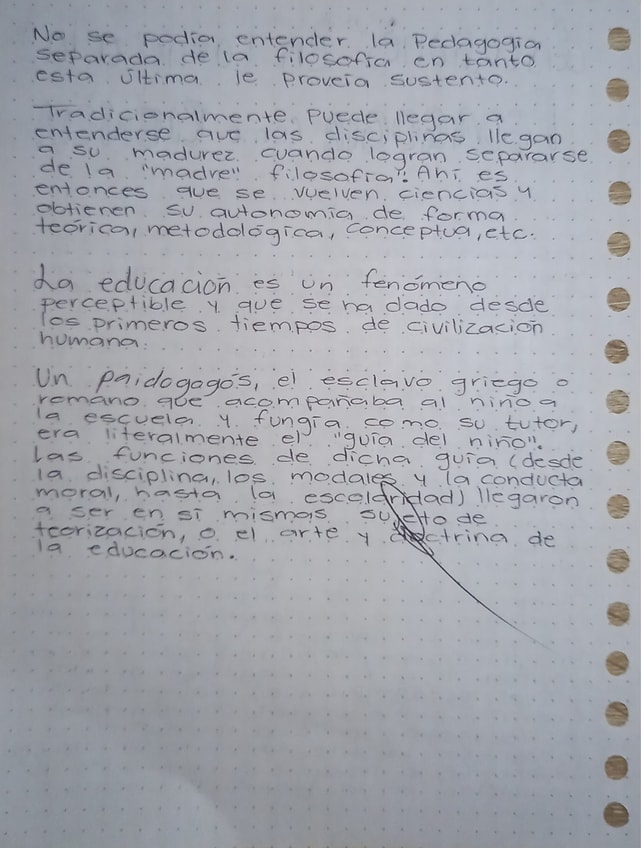 No se podía entender la Pedagogía
separada de la filosofía en tanto
esta última le proveía sustento.
Tradicionalmente puede llegar a
entenderse que las disciplinas llegan
a su madurez cuando logran separarse
de la "madre" filosofía". Ahí es
entonces que se vuelven ciencias y
obtienen su autonomía de forma
teórica, metodológica, conceptua, etc.
La educación es un fenómeno
perceptible y que se ha dado desde
los primeros tiempos de civilización
humana.
Un paidogogós, el esclavo griego o
romano que acompañaba al niño a
la escuela y fungía como su tutor,
era literalmente el "guía del niño".
Las funciones de dicha guía (desde
la disciplina, los modales y la conducta
moral, hasta la escolaridad) llegaron
a ser en sí mismas sujeto de
teorización, o el arte y doctrina de
la educación.